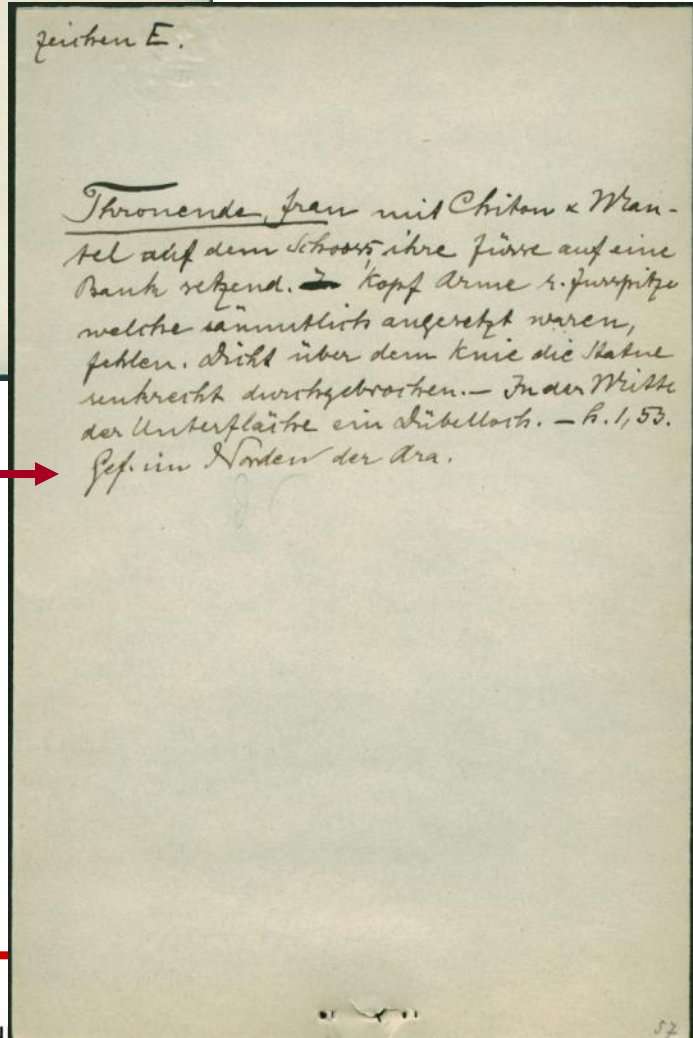 zeichen E.
Thronende Frau mit Chiton & Man-
tel auf dem Schooss, ihre Füsse auf eine
Bank setzend. Kopf Arme r. Fusspitze
welche sämmtlich angesetzt waren,
fehlen. Dicht über dem Knie die Statue
senkrecht durchgebrochen. – In der Mitte
der Unterfläche ein Dübelloch. – h. 1,53.
Gef. im Norden der Ara.
57